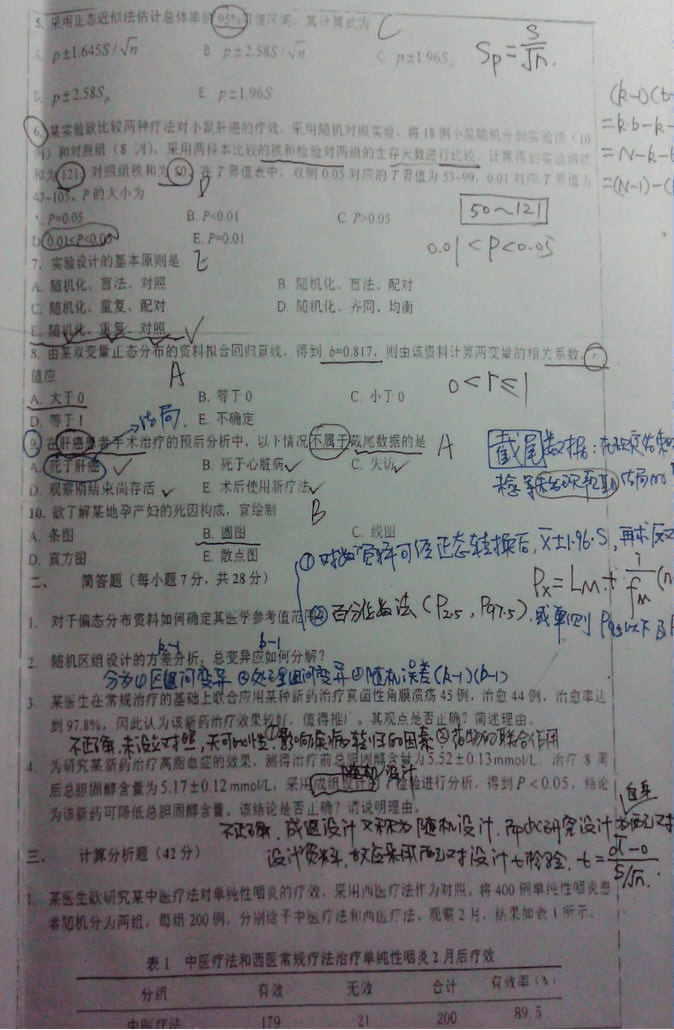 5. 采用正态近似法估计总体率的95%可信区间，其计算式为 C
A. p±1.645S/√n B. p±2.58S/√n C. p±1.96Sp
Sp=S/√n.
D. p±2.58Sp E. p±1.96S
6. 某实验欲比较两种疗法对小鼠肝癌的疗效，采用随机对照实验，将18例小鼠随机分到实验组（10
例）和对照组（8例），采用两样本比较的秩和检验对两组的生存天数进行比较，计算得到实验组秩
和为121，对照组秩和为50，在T界值表中，双侧0.05对应的T界值为53-99，0.01对应T界值为
47-105，P的大小为 D
A. P=0.05 B. P<0.01 C. P>0.05
50~121
D. 0.01<P<0.05 E. P=0.01
0.01<P<0.05
7. 实验设计的基本原则是 E
A. 随机化、盲法、对照 B. 随机化、盲法、配对
C. 随机化、重复、配对 D. 随机化、齐同、均衡
E. 随机化、重复、对照
8. 由某双变量正态分布的资料拟合回归直线，得到 b=0.817，则由该资料计算两变量的相关系数 r
值应 A
A. 大于0 B. 等于0 C. 小于0
0<r≤1
D. 等于1 E. 不确定
结局.
9. 在肝癌患者手术治疗的预后分析中，以下情况不属于截尾数据的是 A
A. 死于肝癌 B. 死于心脏病 C. 失访
截尾数据:
D. 观察期结束尚存活 E. 术后使用新疗法
10. 欲了解某地孕产妇的死因构成，宜绘制 B
A. 条图 B. 圆图 C. 线图
D. 直方图 E. 散点图
① 对数资料可经正态转换后, x±1.96·S, 再求反对
二、 简答题（每小题7分，共28分）
1. 对于偏态分布资料如何确定其医学参考值范围
② 百分位数法 (P2.5, P97.5).
2. 随机区组设计的方差分析，总变异应如何分解？
k-1 b-1
分为①区组间变异 ②处理组间变异 ③随机误差(k-1)(b-1)
3. 某医生在常规治疗的基础上联合应用某种新药治疗真菌性角膜溃疡45例，治愈44例，治愈率达
到97.8%，因此认为该新药治疗效果较好，值得推广。其观点是否正确？简述理由。
不正确,未设立对照,无可比性. ①影响疾病转归的因素 ②药物的联合作用
4. 为研究某新药治疗高脂血症的效果，测得治疗前总胆固醇含量为5.52±0.13mmol/L，治疗8周
随机设计
后总胆固醇含量为5.17±0.12 mmol/L，采用成组设计的t检验进行分析，得到P<0.05，结论
为该新药可降低总胆固醇含量。该结论是否正确？请说明理由。
自身
不正确. 成组设计又称为随机设计. 而此研究设计为配对
三、 计算分析题（42分）
设计资料, 故应采用配对设计t检验. t=d-0/S/√n.
1. 某医生欲研究某中医疗法对单纯性咽炎的疗效，采用西医疗法作为对照，将400例单纯性咽炎患
者随机分为两组，每组200例，分别给予中医疗法和西医疗法，观察2月，结果如表1所示。
表1 中医疗法和西医常规疗法治疗单纯性咽炎2月后疗效
分组 有效 无效 合计 有效率（%）
中医疗法 179 21 200 89.5